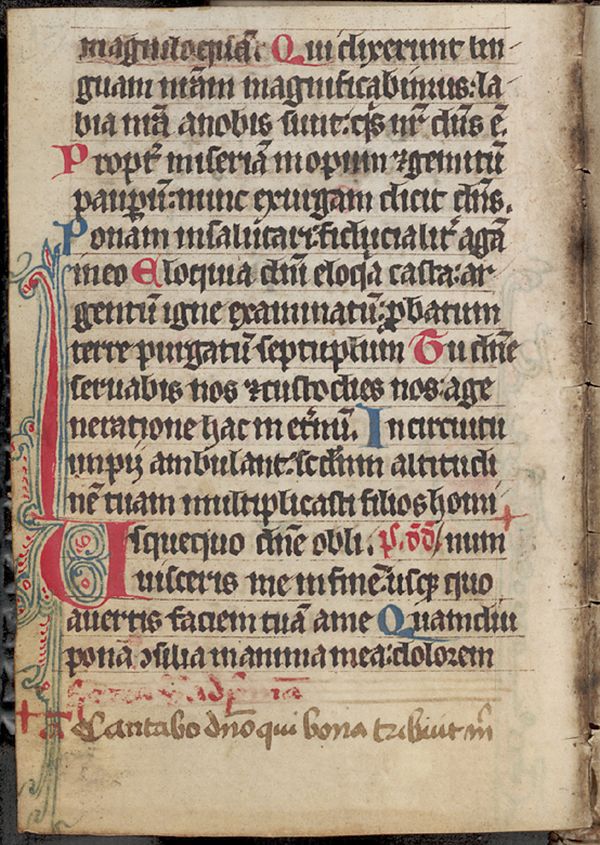 magniloquā. Qui dixerunt lin
guam nr̄am magnificabimus: la
bia nr̄a a nobis sunt: q̄s nr̄ dn̄s ē.
Propt̄ miseriā inopum ⁊ gemitū
paup̄um: nunc exurgam dicit dn̄s.
Ponam in salutari: fiducialit̄ agā
in eo Eloquia dn̄i eloq̄a casta: ar
gentū igne examinatū: p̄batum
terre purgatū septuplum Tu dn̄e
seruabis nos ⁊ custodies nos: a ge
neratione hac in et̄nū. In circuitu
impij ambulant: scd̄m altitudi
nē tuam multiplicasti filios homi
Usquequo dn̄e obli. ps. dd̄. num
uisceris me in finē: usq̄ quo
auertis faciem tuā a me Quamdiu
ponā ꝯsilia in anima mea: dolorem
Cantabo dn̄o qui bona tribuit m̄